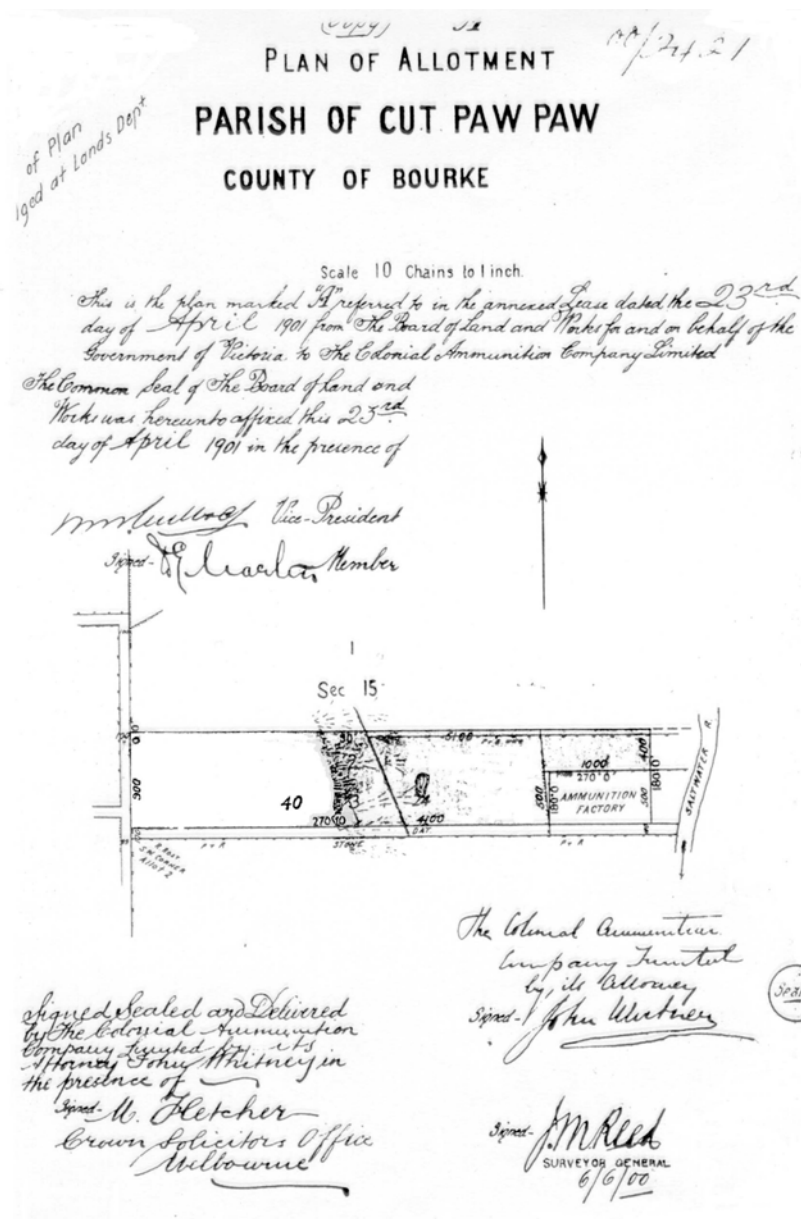 (Copy)
PLAN OF ALLOTMENT
PARISH OF CUT PAW PAW
COUNTY OF BOURKE
of Plan
lged at Lands Dept
Scale 10 Chains to 1 inch.
This is the plan marked "A" referred to in the annexed Lease dated the 23rd
day of April 1901 from The Board of Land and Works for and on behalf of the
Government of Victoria to The Colonial Ammunition Company Limited
The Common Seal of The Board of Land and
Works was hereunto affixed this 23rd
day of April 1901 in the presence of
Vice-President
Signed- Member
1
Sec 15
30
5100
1000
400
270°0'
180°0'
AMMUNITION
FACTORY
500
180°0'
500
900
40
270°0'
24
4100
SALTWATER R.
R. POST
S.W. CORNER
ALLOT 2
P & R
STONE
DAY
P & R
The Colonial Ammunition
Company Limited
by its Attorney
Signed- John Whitney
Seal
Signed Sealed and Delivered
by The Colonial Ammunition
Company Limited by its
Attorney John Whitney in
the presence of
Signed- M. Fletcher
Crown Solicitors Office
Melbourne
Signed- J.M Reed
SURVEYOR GENERAL
6/6/00